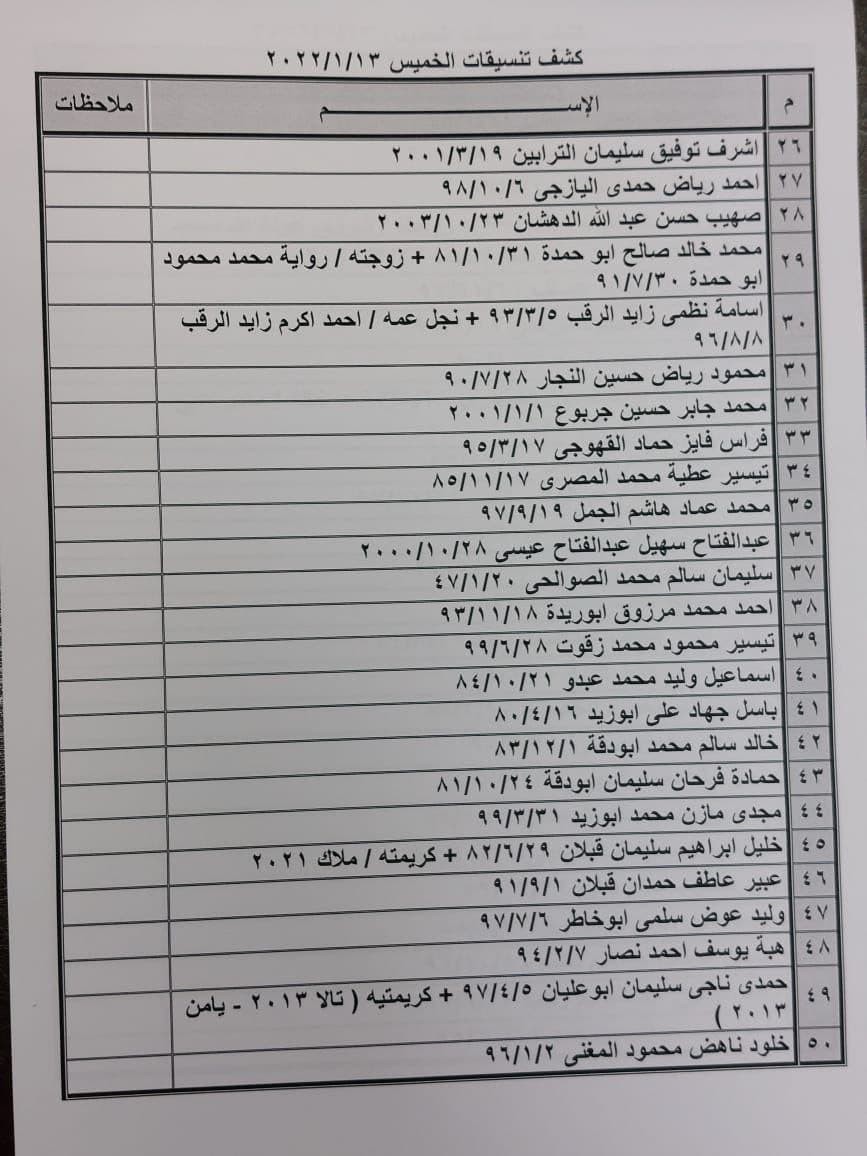 كشف تنسيقات الخميس ٢٠٢٢/١/١٣
م الإســـــــــم ملاحظات
٢٦ اشرف توفيق سليمان الترابين ٢٠٠١/٣/١٩
٢٧ احمد رياض حمدى اليازجى ٩٨/١٠/٦
٢٨ صهيب حسن عبد الله الدهشان ٢٠٠٣/١٠/٢٣
٢٩ محمد خالد صالح ابو حمدة ٨١/١٠/٣١ + زوجته / رواية محمد محمود
ابو حمدة ٩١/٧/٣٠
٣٠ اسامة نظمى زايد الرقب ٩٣/٣/٥ + نجل عمه / احمد اكرم زايد الرقب
٩٦/٨/٨
٣١ محمود رياض حسين النجار ٩٠/٧/٢٨
٣٢ محمد جابر حسين جربوع ٢٠٠١/١/١
٣٣ فراس فايز حماد القهوجى ٩٥/٣/١٧
٣٤ تيسير عطية محمد المصرى ٨٥/١١/١٧
٣٥ محمد عماد هاشم الجمل ٩٧/٩/١٩
٣٦ عبدالفتاح سهيل عبدالفتاح عيسى ٢٠٠٠/١٠/٢٨
٣٧ سليمان سالم محمد الصوالحى ٤٧/١/٢٠
٣٨ احمد محمد مرزوق ابوريدة ٩٣/١١/١٨
٣٩ تيسير محمود محمد زقوت ٩٩/٦/٢٨
٤٠ اسماعيل وليد محمد عبدو ٨٤/١٠/٢١
٤١ باسل جهاد على ابوزيد ٨٠/٤/١٦
٤٢ خالد سالم محمد ابودقة ٨٣/١٢/١
٤٣ حمادة فرحان سليمان ابودقة ٨١/١٠/٢٤
٤٤ مجدى مازن محمد ابوزيد ٩٩/٣/٣١
٤٥ خليل ابراهيم سليمان قبلان ٨٢/٦/٢٩ + كريمته / ملاك ٢٠٢١
٤٦ عبير عاطف حمدان قبلان ٩١/٩/١
٤٧ وليد عوض سلمى ابوخاطر ٩٧/٧/٦
٤٨ هبة يوسف احمد نصار ٩٤/٢/٧
٤٩ حمدى ناجى سليمان ابوعليان ٩٧/٤/٥ + كريمتيه ( تالا ٢٠١٣ - يامن
٢٠١٣ )
٥٠ خلود ناهض محمود المغنى ٩٦/١/٢